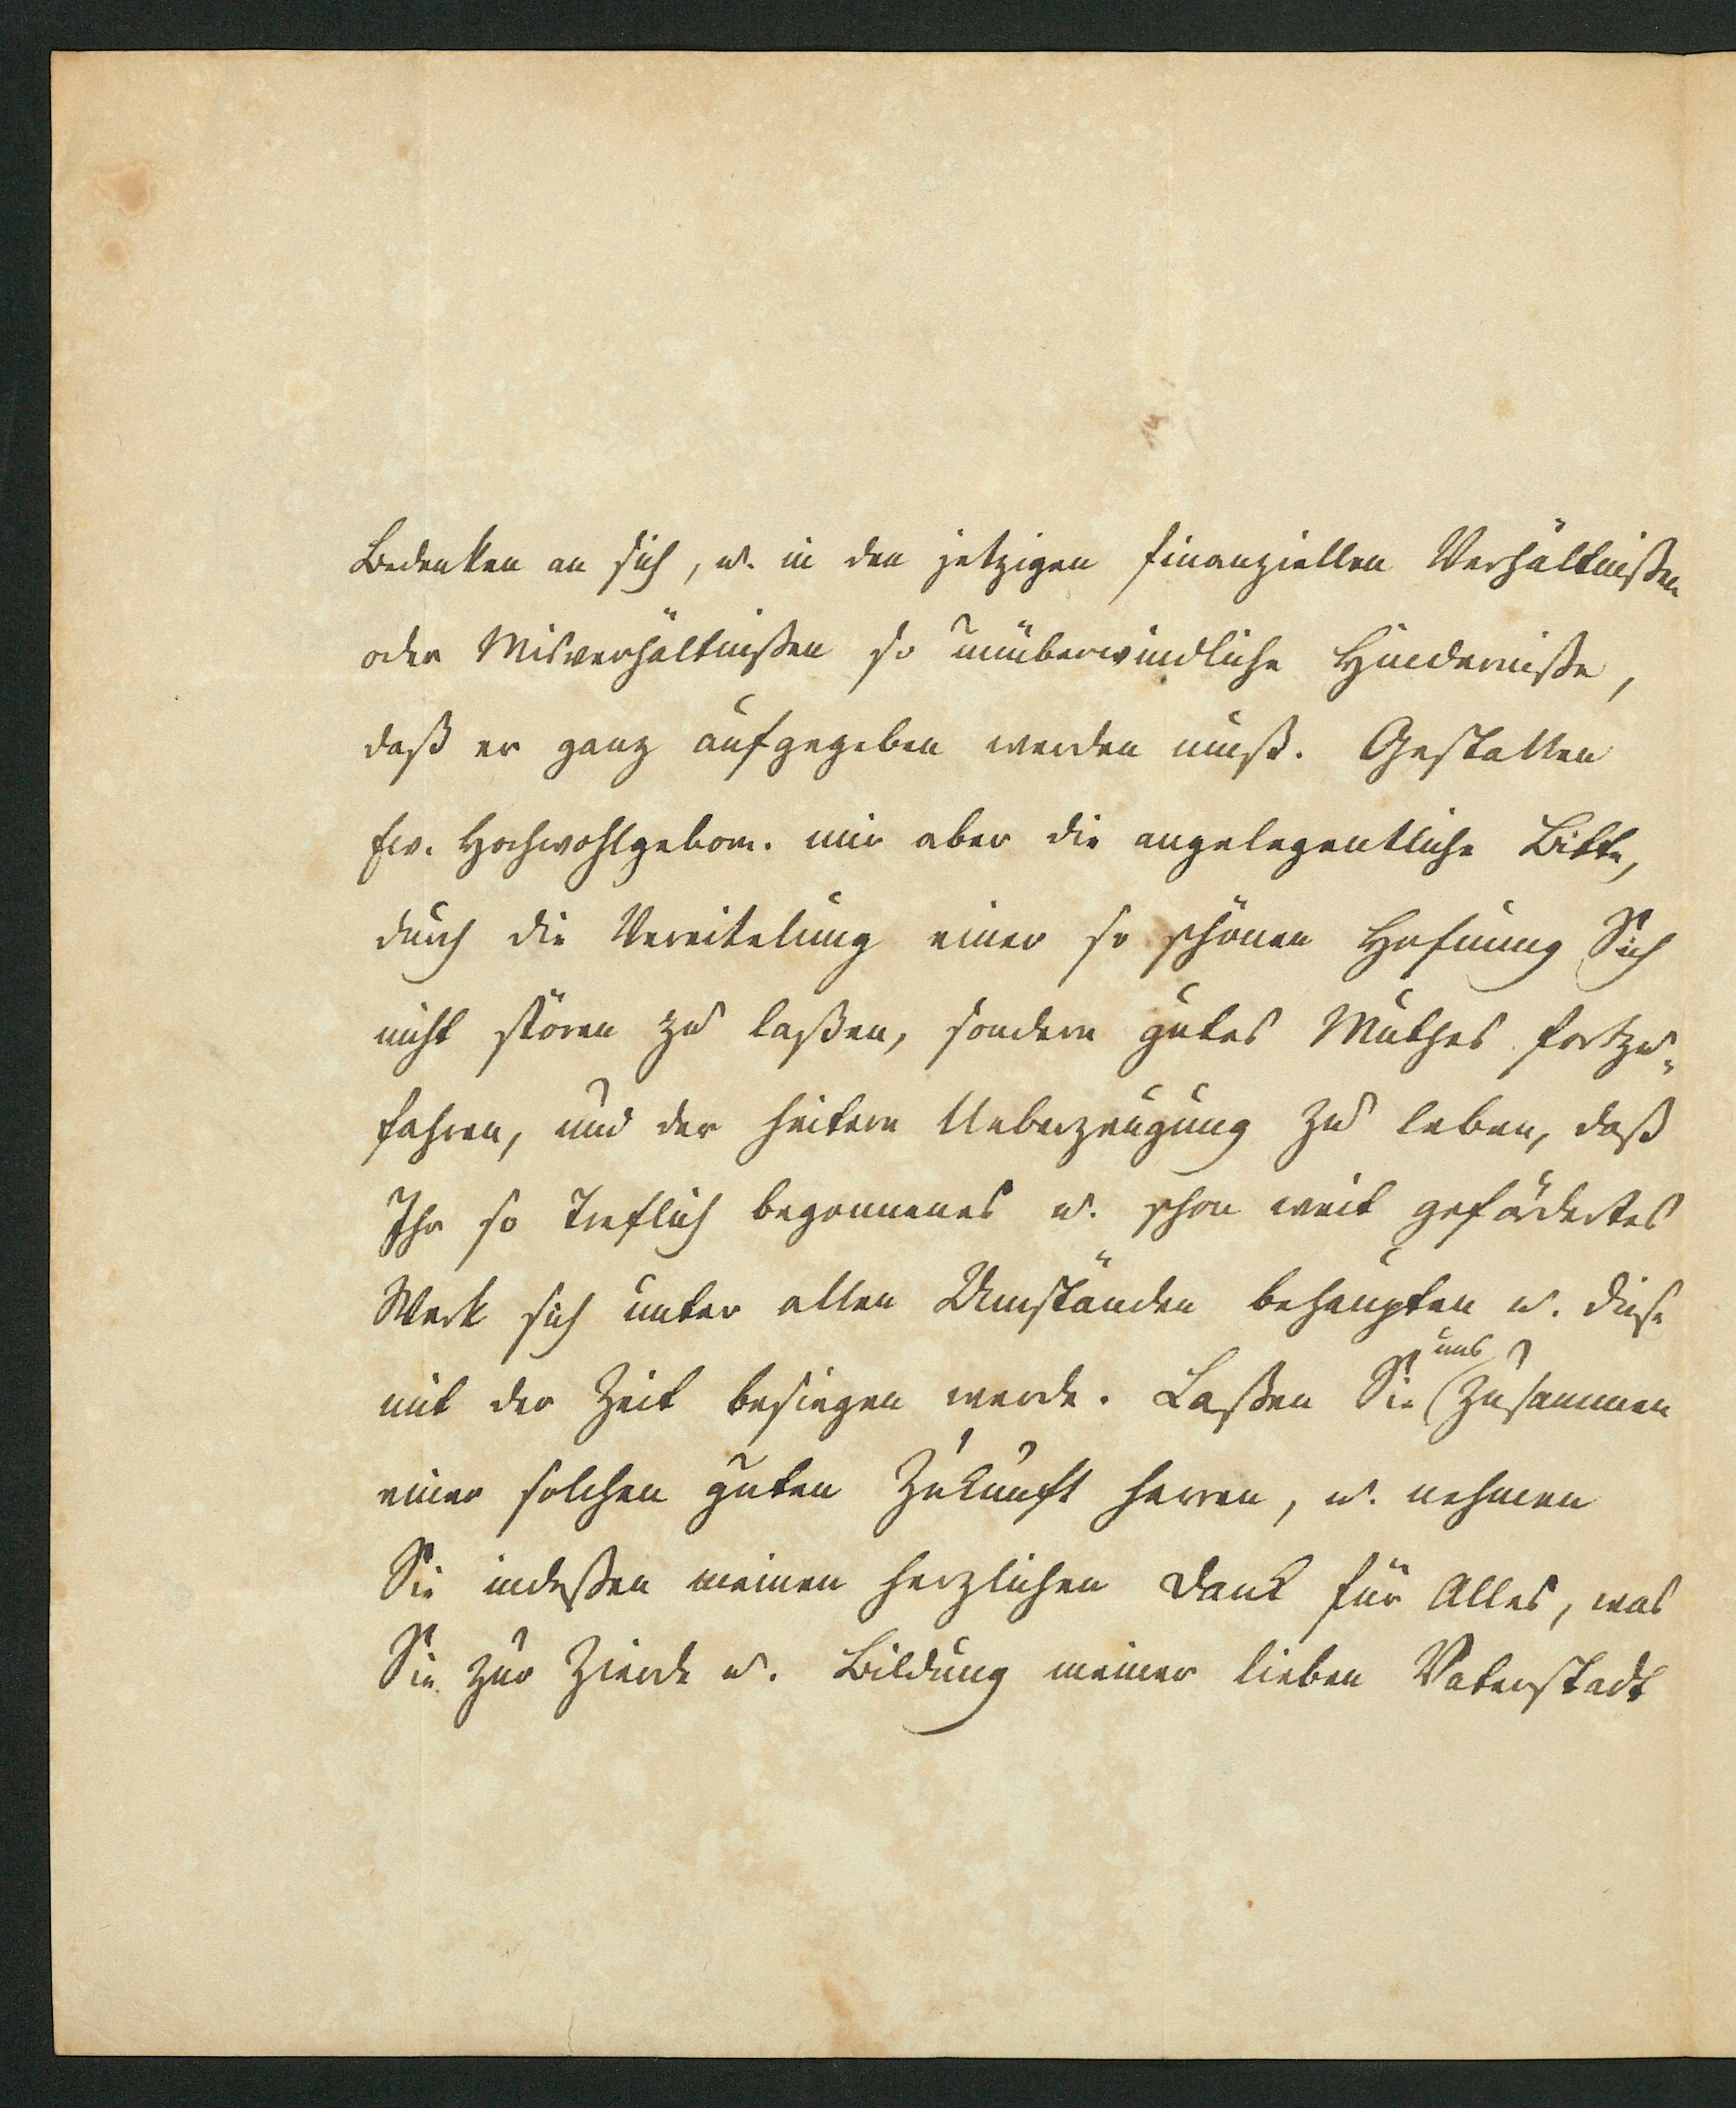 Bedenken an sich, u. in den jetzigen finanziellen Verhältnißen
oder Misverhältnißen so unüberwindliche Hinderniße,
daß er ganz aufgegeben werden muß. Gestatten
Ew. Hochwohlgebor. mir aber die angelegentliche Bitte,
durch die Vereitelung einer so schönen Hofnung Sich
nicht stören zu laßen, sondern gutes Muthes fortzu-
fahren, und der heitern Ueberzeugung zu leben, daß
Ihr so treflich begonnenes u. schon weit gefördertes
Werk sich unter allen Umständen behaupten u. diese
mit der Zeit besiegen werde. Laßen Sie uns zusammen
einer solchen guten Zukunft harren, u. nehmen
Sie indeßen meinen herzlichen Dank für Alles, was
Sie zur Zierde u. Bildung meiner lieben Vaterstadt